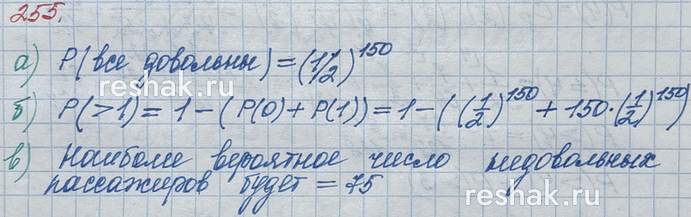 255.
а) P(все довольны) = (1/2)^150
reshak.ru
б) P(>1) = 1 - (P(0) + P(1)) = 1 - ((1/2)^150 + 150·(1/2)^150)
в) Наиболее вероятное число недовольных
пассажиров будет = 75
reshak.ru